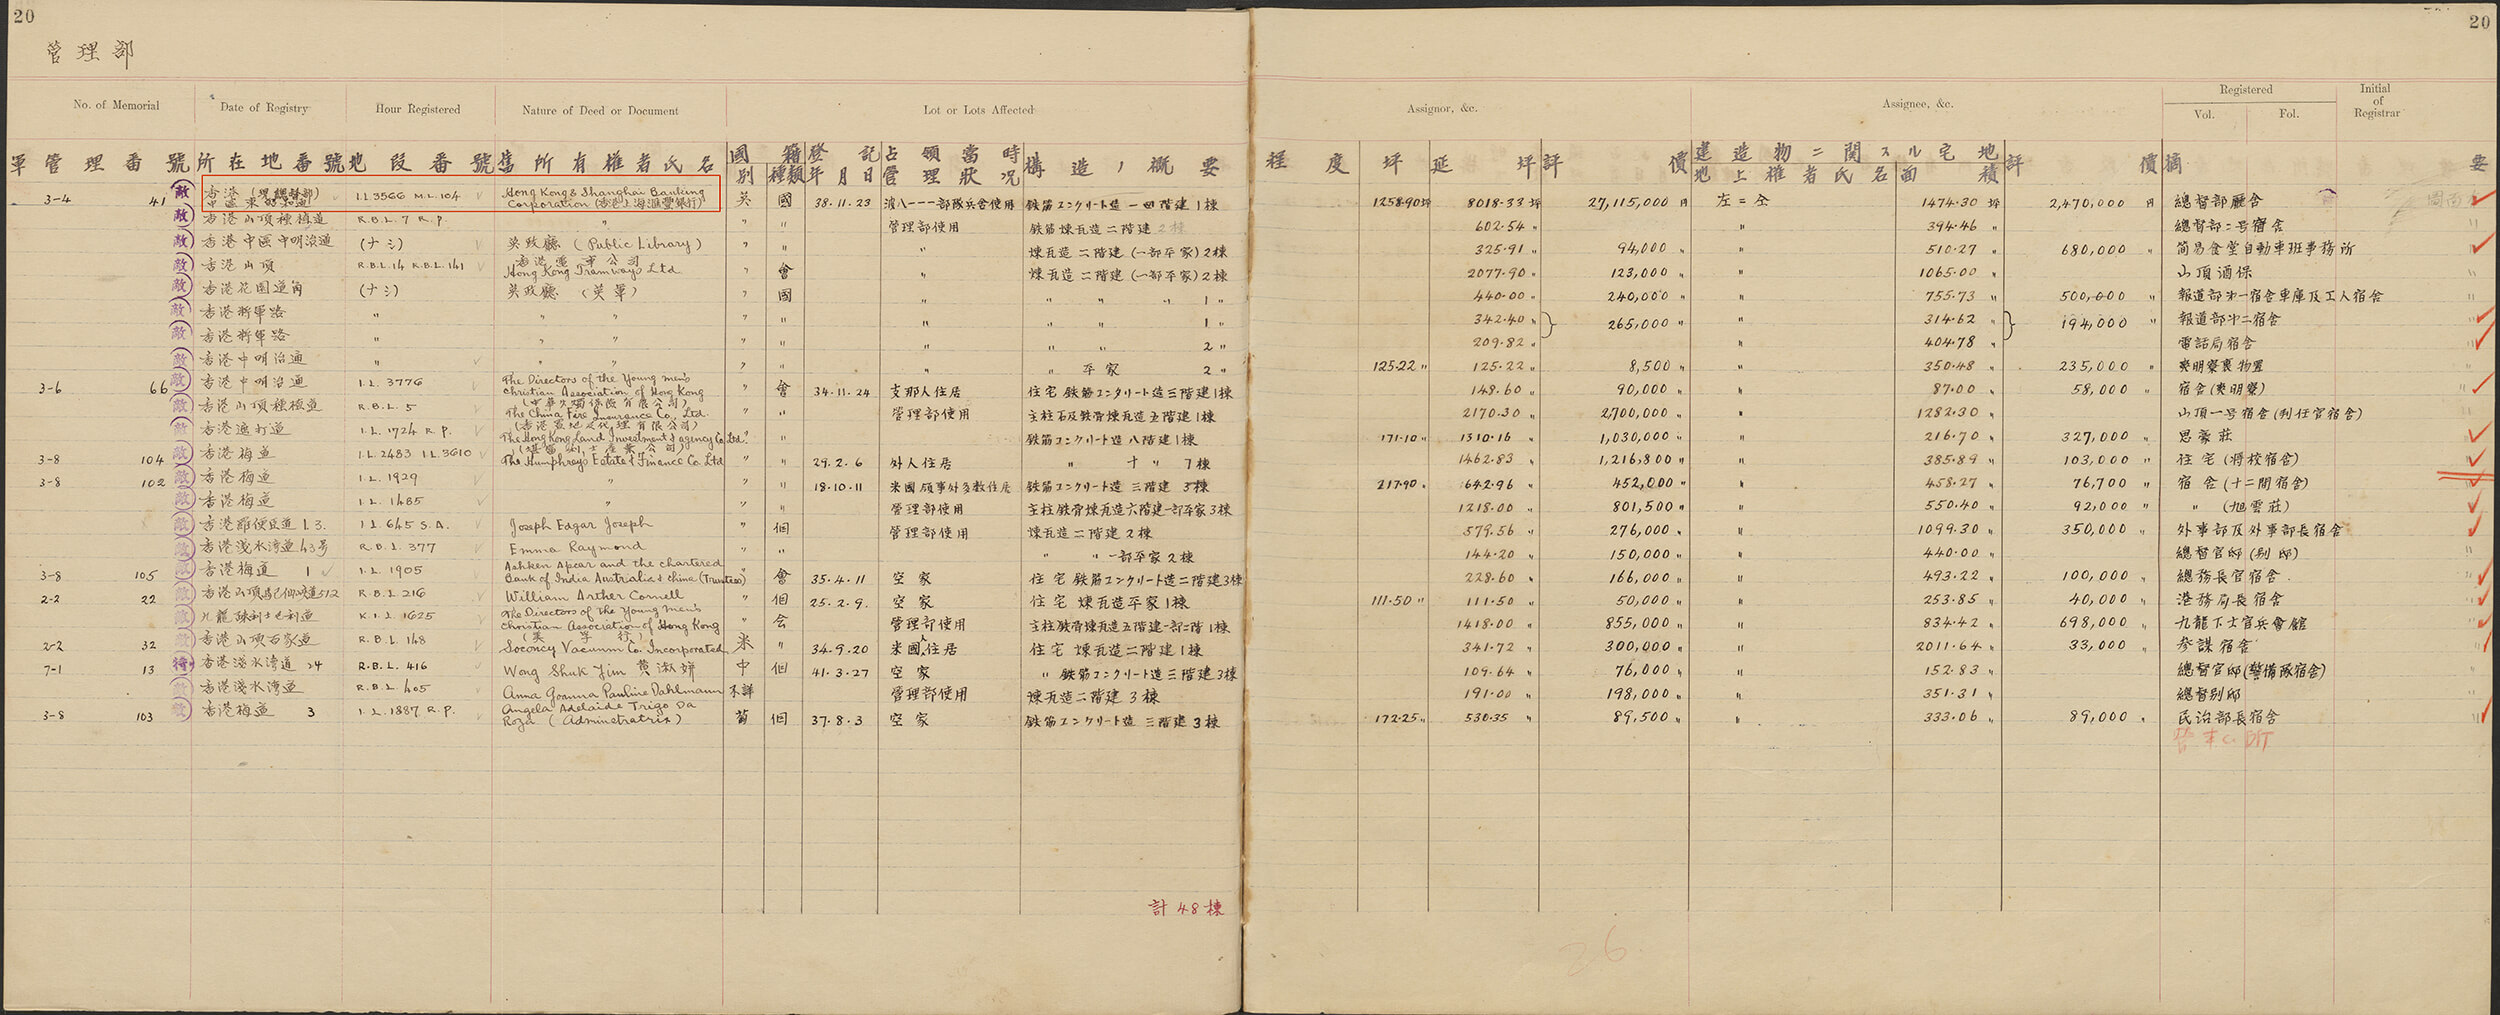 20
20
管理部
No. of Memorial Date of Registry Hour Registered Nature of Deed or Document Lot or Lots Affected Assignor, &c. Assignee, &c. Registered Vol. Fol. Initial of Registrar
軍管理番號 所在地番號 地段番號 舊所有權者氏名 國別 籍種類 登記年月日 占領當時管理狀況 構造ノ概要 程度 坪 延坪 評價 建造物ニ関スル宅地 地上權者氏名 面積 評價 摘要
3-4 41 敵 香港 中區東昭和通 I.L.3566 M.L.104 Hong Kong & Shanghai Banking Corporation (香港上海滙豐銀行) 英 國 38.11.23 部隊兵舍使用 鉄筋コンクリート造一四階建1棟 1258.90坪 8018.33坪 27,115,000円 左ニ仝 1474.30坪 2,470,000円 總督部廳舍
敵 香港山頂種植道 R.B.L.7 R.P. 〃 〃 〃 管理部使用 鉄筋煉瓦造二階建2棟 602.54〃 〃 394.46〃 總督部二号宿舍
敵 香港中區中明治通 (ナシ) 英政廳 (Public Library) 〃 〃 〃 煉瓦造二階建(一部平家)2棟 325.91〃 94,000〃 〃 510.27〃 680,000〃 简易食堂自動車班事務所
敵 香港山頂 R.B.L.14 R.B.L.141 香港電車公司 Hong Kong Tramways Ltd 〃 會 〃 煉瓦造二階建(一部平家)2棟 2077.90〃 123,000〃 〃 1065.00〃 山頂酒保
敵 香港花園道角 (ナシ) 英政廳 (英軍) 〃 國 〃 〃 〃 〃 1〃 440.00〃 240,000〃 〃 755.73〃 500,000〃 報道部第一宿舍車庫及工人宿舍
敵 香港将軍路 〃 〃 〃 〃 〃 〃 〃 〃 1〃 342.40〃 265,000〃 〃 314.62〃 194,000〃 報道部第二宿舍
敵 香港将軍路 〃 〃 〃 〃 〃 〃 〃 〃 2〃 209.82〃 〃 404.78〃 電話局宿舍
敵 香港中明治通 〃 〃 〃 〃 〃 〃 〃 平家 2〃 125.22〃 125.22〃 8,500〃 〃 350.48〃 235,000〃 東明寮裏物置
3-6 66 敵 香港中明治通 I.L. 3776 The Directors of the Young men's Christian Association of Hong Kong 〃 會 34.11.24 支那人住居 住宅鉄筋コンクリート造三階建1棟 148.60〃 90,000〃 〃 87.00〃 58,000〃 宿舍(東明寮)
敵 香港山頂種植道 R.B.L. 5 The China Fire Insurance Co., Ltd. 〃 〃 管理部使用 主柱石及鉄骨煉瓦造五階建1棟 2170.30〃 2,700,000〃 〃 1282.30〃 山頂一号宿舍(判任官宿舍)
敵 香港遮打道 I.L. 1724 R.P. (香港置地及代理有限公司) The Hong Kong Land Investment & agency Co Ltd. 〃 〃 鉄筋コンクリート造八階建1棟 171.10〃 1310.16〃 1,030,000〃 〃 216.70〃 327,000〃 思豪莊
3-8 104 敵 香港梅道 I.L.2483 I.L.3610 The Humphreys Estate & Finance Co. Ltd 〃 〃 29.2.6 外人住居 〃 十〃 7棟 1462.83〃 1,216,800〃 〃 385.89〃 103,000〃 住宅(将校宿舍)
3-8 102 敵 香港梅道 I.L. 1929 〃 〃 〃 18.10.11 米國領事外多数住居 鉄筋コンクリート造三階建3棟 217.90〃 642.96〃 452,000〃 〃 458.27〃 76,700〃 宿舍(十二間宿舍)
敵 香港梅道 I.L. 1485 〃 〃 〃 管理部使用 主柱鉄骨煉瓦造六階建一部平家3棟 1218.00〃 801,500〃 〃 550.40〃 92,000〃 〃 (旭雲莊)
敵 香港羅便臣道13. I.L. 645 S.A. Joseph Edgar Joseph 〃 個 管理部使用 煉瓦造二階建2棟 579.56〃 276,000〃 〃 1099.30〃 350,000〃 外事部及外事部長宿舍
敵 香港淺水湾道43号 R.B.L. 377 Emma Raymond 〃 〃 〃 〃一部平家2棟 144.20〃 150,000〃 〃 440.00〃 總督官邸(别邸)
3-8 105 敵 香港梅道 1 I.L. 1905 Ashken Apcar and the chartered Bank of India Australia & china (Trustees) 〃 會 35.4.11 空家 住宅鉄筋コンクリート造二階建3棟 228.60〃 166,000〃 〃 493.22〃 100,000〃 總務長官宿舍
2-2 22 敵 香港山頂 512 R.B.L. 216 William Arther Cornell 〃 個 25.2.9. 空家 住宅煉瓦造平家1棟 111.50〃 111.50〃 50,000〃 〃 253.85〃 40,000〃 港務局長宿舍
敵 九龍疎利士巴利道 K.I.L. 1625 The Directors of the Young men's Christian Association of Hong Kong 〃 会 管理部使用 主柱鉄骨煉瓦造五階建一部二階1棟 1418.00〃 855,000〃 〃 834.42〃 698,000〃 九龍下士官兵會館
2-2 32 敵 香港山頂石家道 R.B.L. 148 Soconcy Vacumm Co. Incorporated 米 〃 34.9.20 米國人住居 住宅煉瓦造二階建1棟 341.72〃 300,000〃 〃 2011.64〃 33,000〃 参謀宿舍
7-1 13 特 香港淺水湾道 24 R.B.L. 416 Wong Shuk Jim 黄淑妍 中 個 41.3.27 空家 〃鉄筋コンクリート造三階建3棟 109.64〃 76,000〃 〃 152.83〃 總督官邸(警備隊宿舍)
敵 香港淺水湾道 R.B.L. 405 Anna Joanna Pauline Dahlmann 不詳 管理部使用 煉瓦造二階建3棟 191.00〃 198,000〃 〃 351.31〃 總督别邸
3-8 103 敵 香港梅道 3 I.L. 1887 R.P. Angela Adelaide Trigo Da Roza (Adminstratrix) 葡 個 37.8.3 空家 鉄筋コンクリート造三階建3棟 172.25〃 530.35〃 89,500〃 〃 333.06〃 89,000〃 民治部長宿舍
計48棟
26